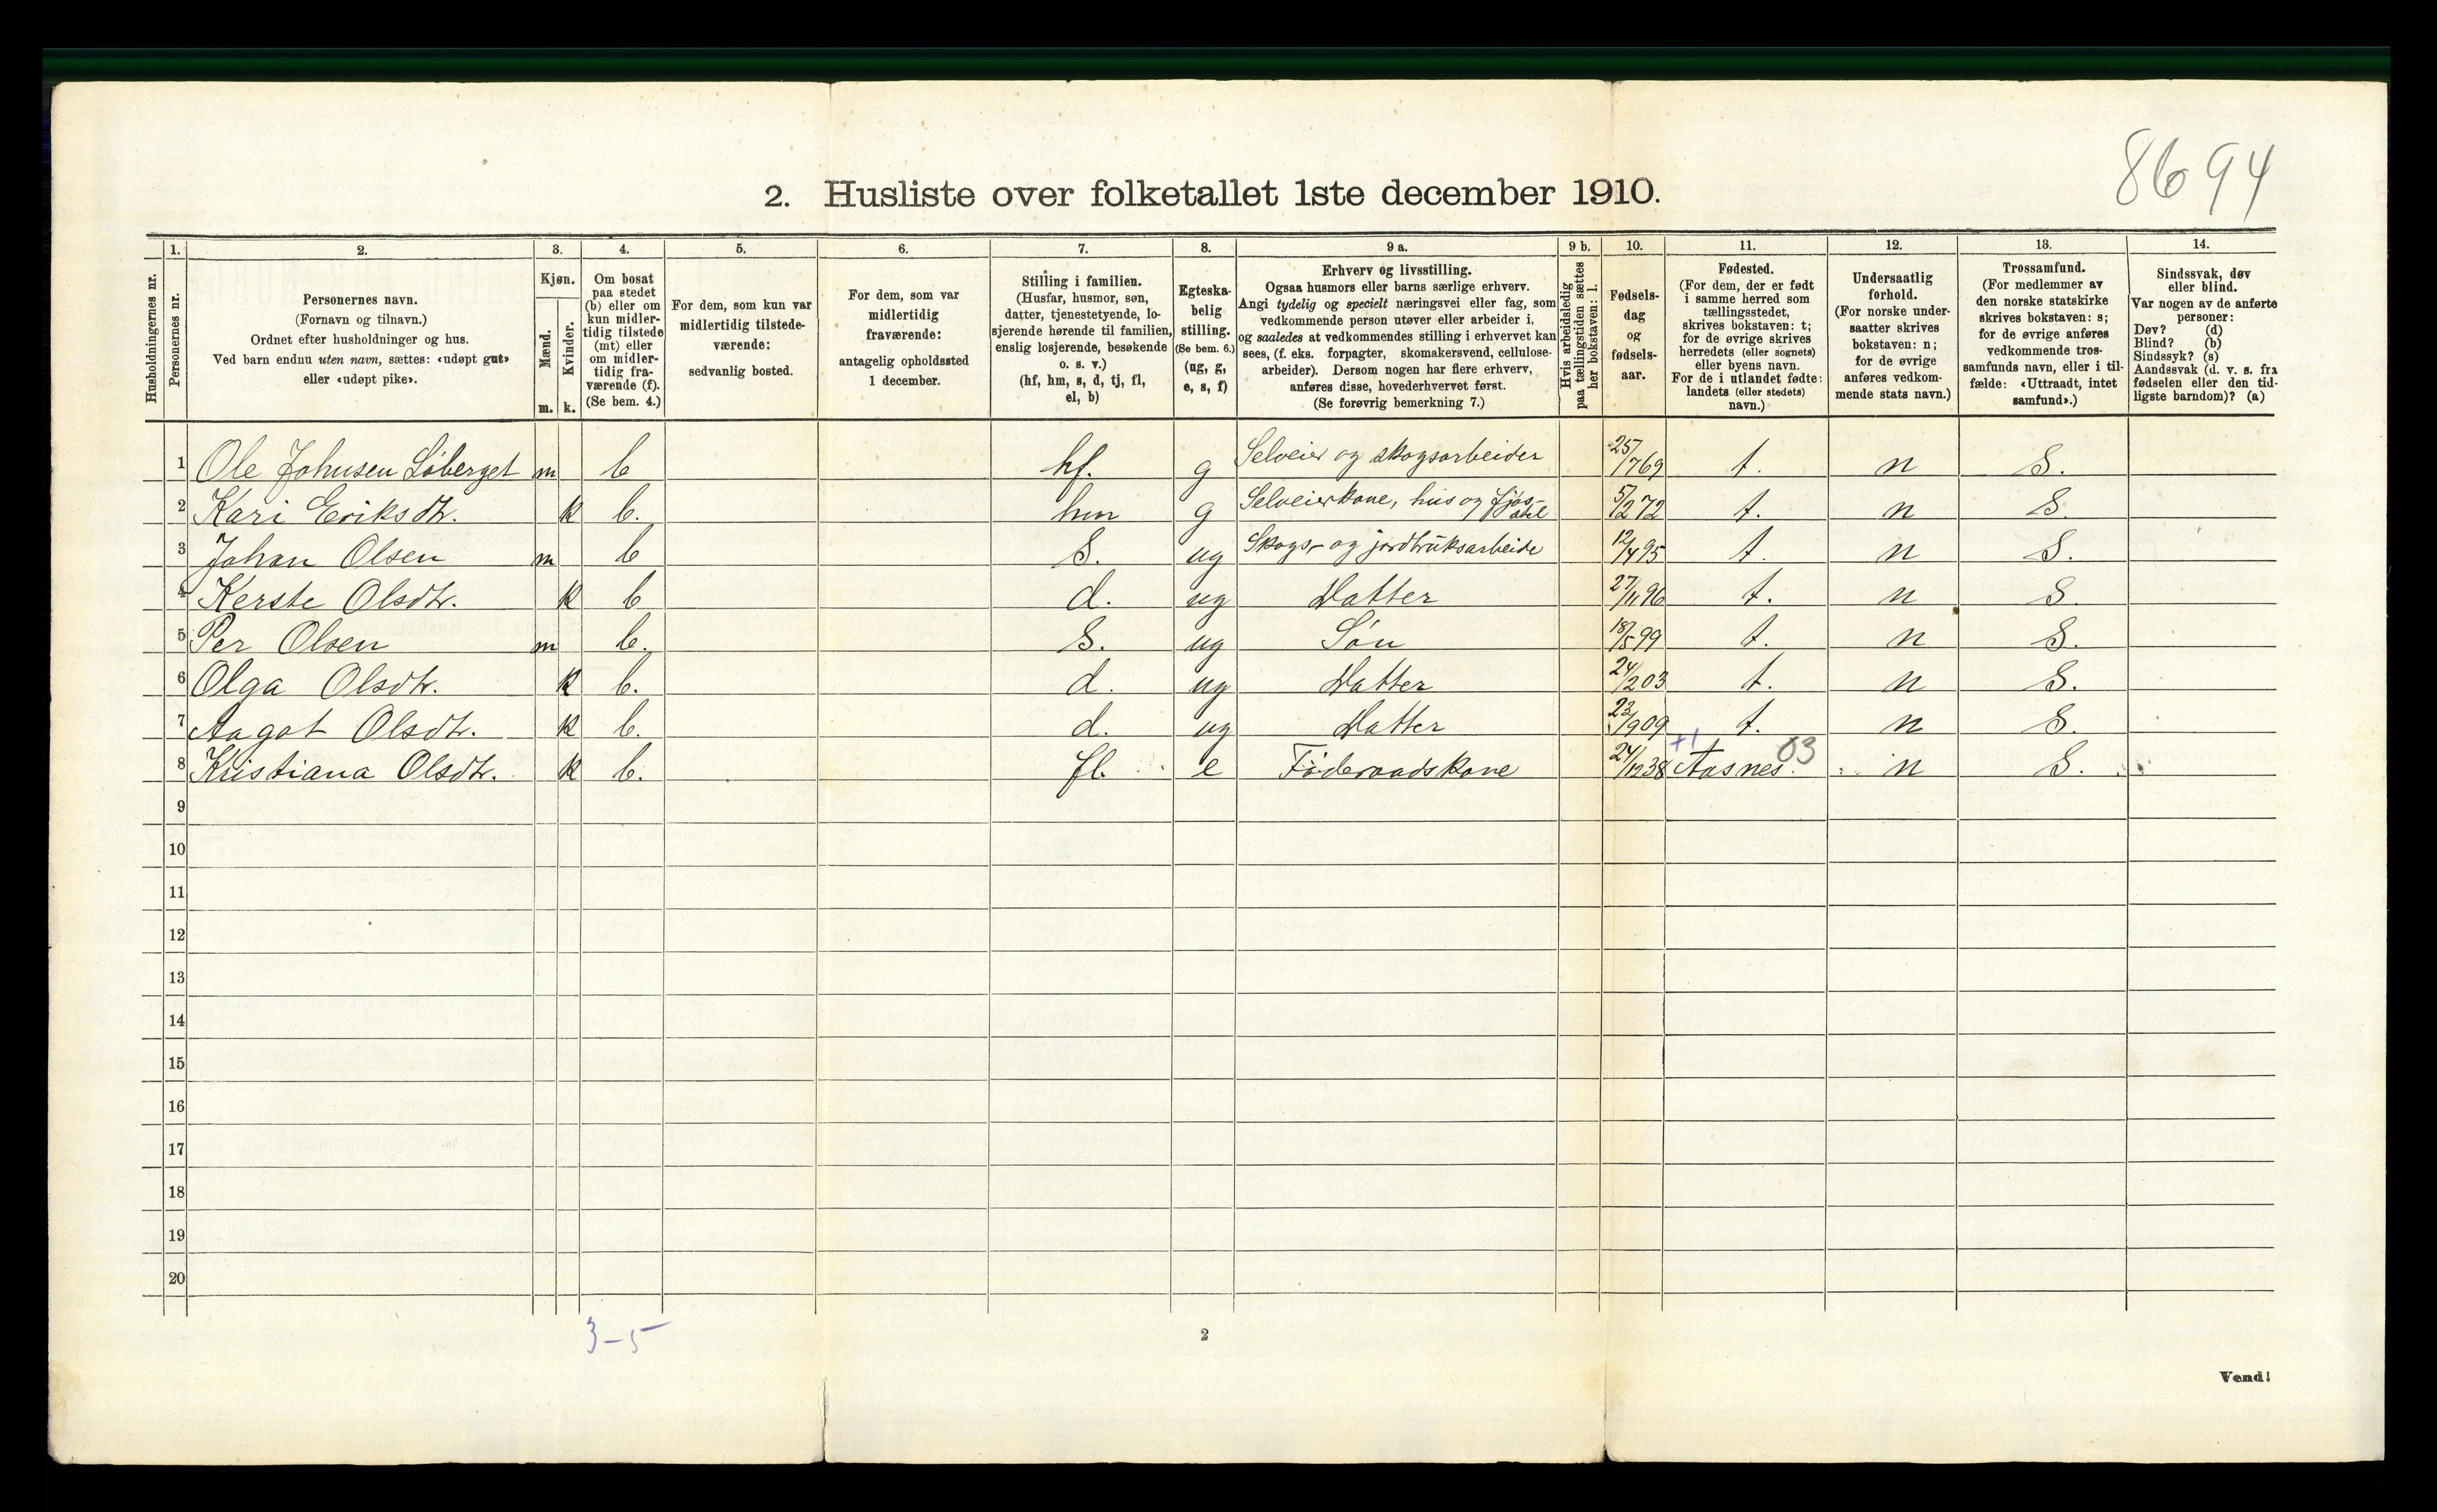 8694
2. Husliste over folketallet 1ste december 1910.
1. 2. 3. 4. 5. 6. 7. 8. 9 a. 9 b. 10. 11. 12. 13. 14.
Husholdningernes nr.
Personernes nr.
Personernes navn.
(Fornavn og tilnavn.)
Ordnet efter husholdninger og hus.
Ved barn endnu uten navn, sættes: «udøpt gut»
eller «udøpt pike».
Kjøn.
Mænd.
Kvinder.
m. k.
Om bosat
paa stedet
(b) eller om
kun midler-
tidig tilstede
(mt) eller
om midler-
tidig fra-
værende (f).
(Se bem. 4.)
For dem, som kun var
midlertidig tilstede-
værende:
sedvanlig bosted.
For dem, som var
midlertidig
fraværende:
antagelig opholdssted
1 december.
Stilling i familien.
(Husfar, husmor, søn,
datter, tjenestetyende, lo-
sjerende hørende til familien,
enslig losjerende, besøkende
o. s. v.)
(hf, hm, s, d, tj, fl,
el, b)
Egteska-
belig
stilling.
(Se bem. 6.)
(ug, g,
e, s, f)
Erhverv og livsstilling.
Ogsaa husmors eller barns særlige erhverv.
Angi tydelig og specielt næringsvei eller fag, som
vedkommende person utøver eller arbeider i,
og saaledes at vedkommendes stilling i erhvervet kan
sees, (f. eks. forpagter, skomakersvend, cellulose-
arbeider). Dersom nogen har flere erhverv,
anføres disse, hovederhvervet først.
(Se forøvrig bemerkning 7.)
Hvis arbeidsledig
paa tællingstiden sættes
her bokstaven: l.
Fødsels-
dag
og
fødsels-
aar.
Fødested.
(For dem, der er født
i samme herred som
tællingsstedet,
skrives bokstaven: t;
for de øvrige skrives
herredets (eller sognets)
eller byens navn.
For de i utlandet fødte:
landets (eller stedets)
navn.)
Undersaatlig
forhold.
(For norske under-
saatter skrives
bokstaven: n;
for de øvrige
anføres vedkom-
mende stats navn.)
Trossamfund.
(For medlemmer av
den norske statskirke
skrives bokstaven: s;
for de øvrige anføres
vedkommende tros-
samfunds navn, eller i til-
fælde: «Uttraadt, intet
samfund».)
Sindssvak, døv
eller blind.
Var nogen av de anførte
personer:
Døv? (d)
Blind? (b)
Sindssyk? (s)
Aandssvak (d. v. s. fra
fødselen eller den tid-
ligste barndom)? (a)
1 Ole Johnsen Löberget m b hf. g Selveier og skogsarbeider 25/7 69 t. n S.
2 Kari Eriksdtr. k b. hm g Selveierkone, hus og fjös- stel 5/2 72 t. n S.
3 Johan Olsen m b S. ug Skogs- og jordbruksarbeide 12/4 95 t. n S.
4 Kerste Olsdtr. k b d. ug Datter 27/11 96 t. n S.
5 Per Olsen m b. S. ug Sön 18/5 99 t. n S.
6 Olga Olsdtr. k b. d. ug Datter 24/2 03 t. n S.
7 Aagot Olsdtr. k b. d. ug Datter 23/9 09 t. n S.
8 Kristiana Olsdtr. k b. fl. e Föderaadskone 24/12 38 +1 Aasnes. 03 n S.
9
10
11
12
13
14
15
16
17
18
19
20
3-5
2
Vend!